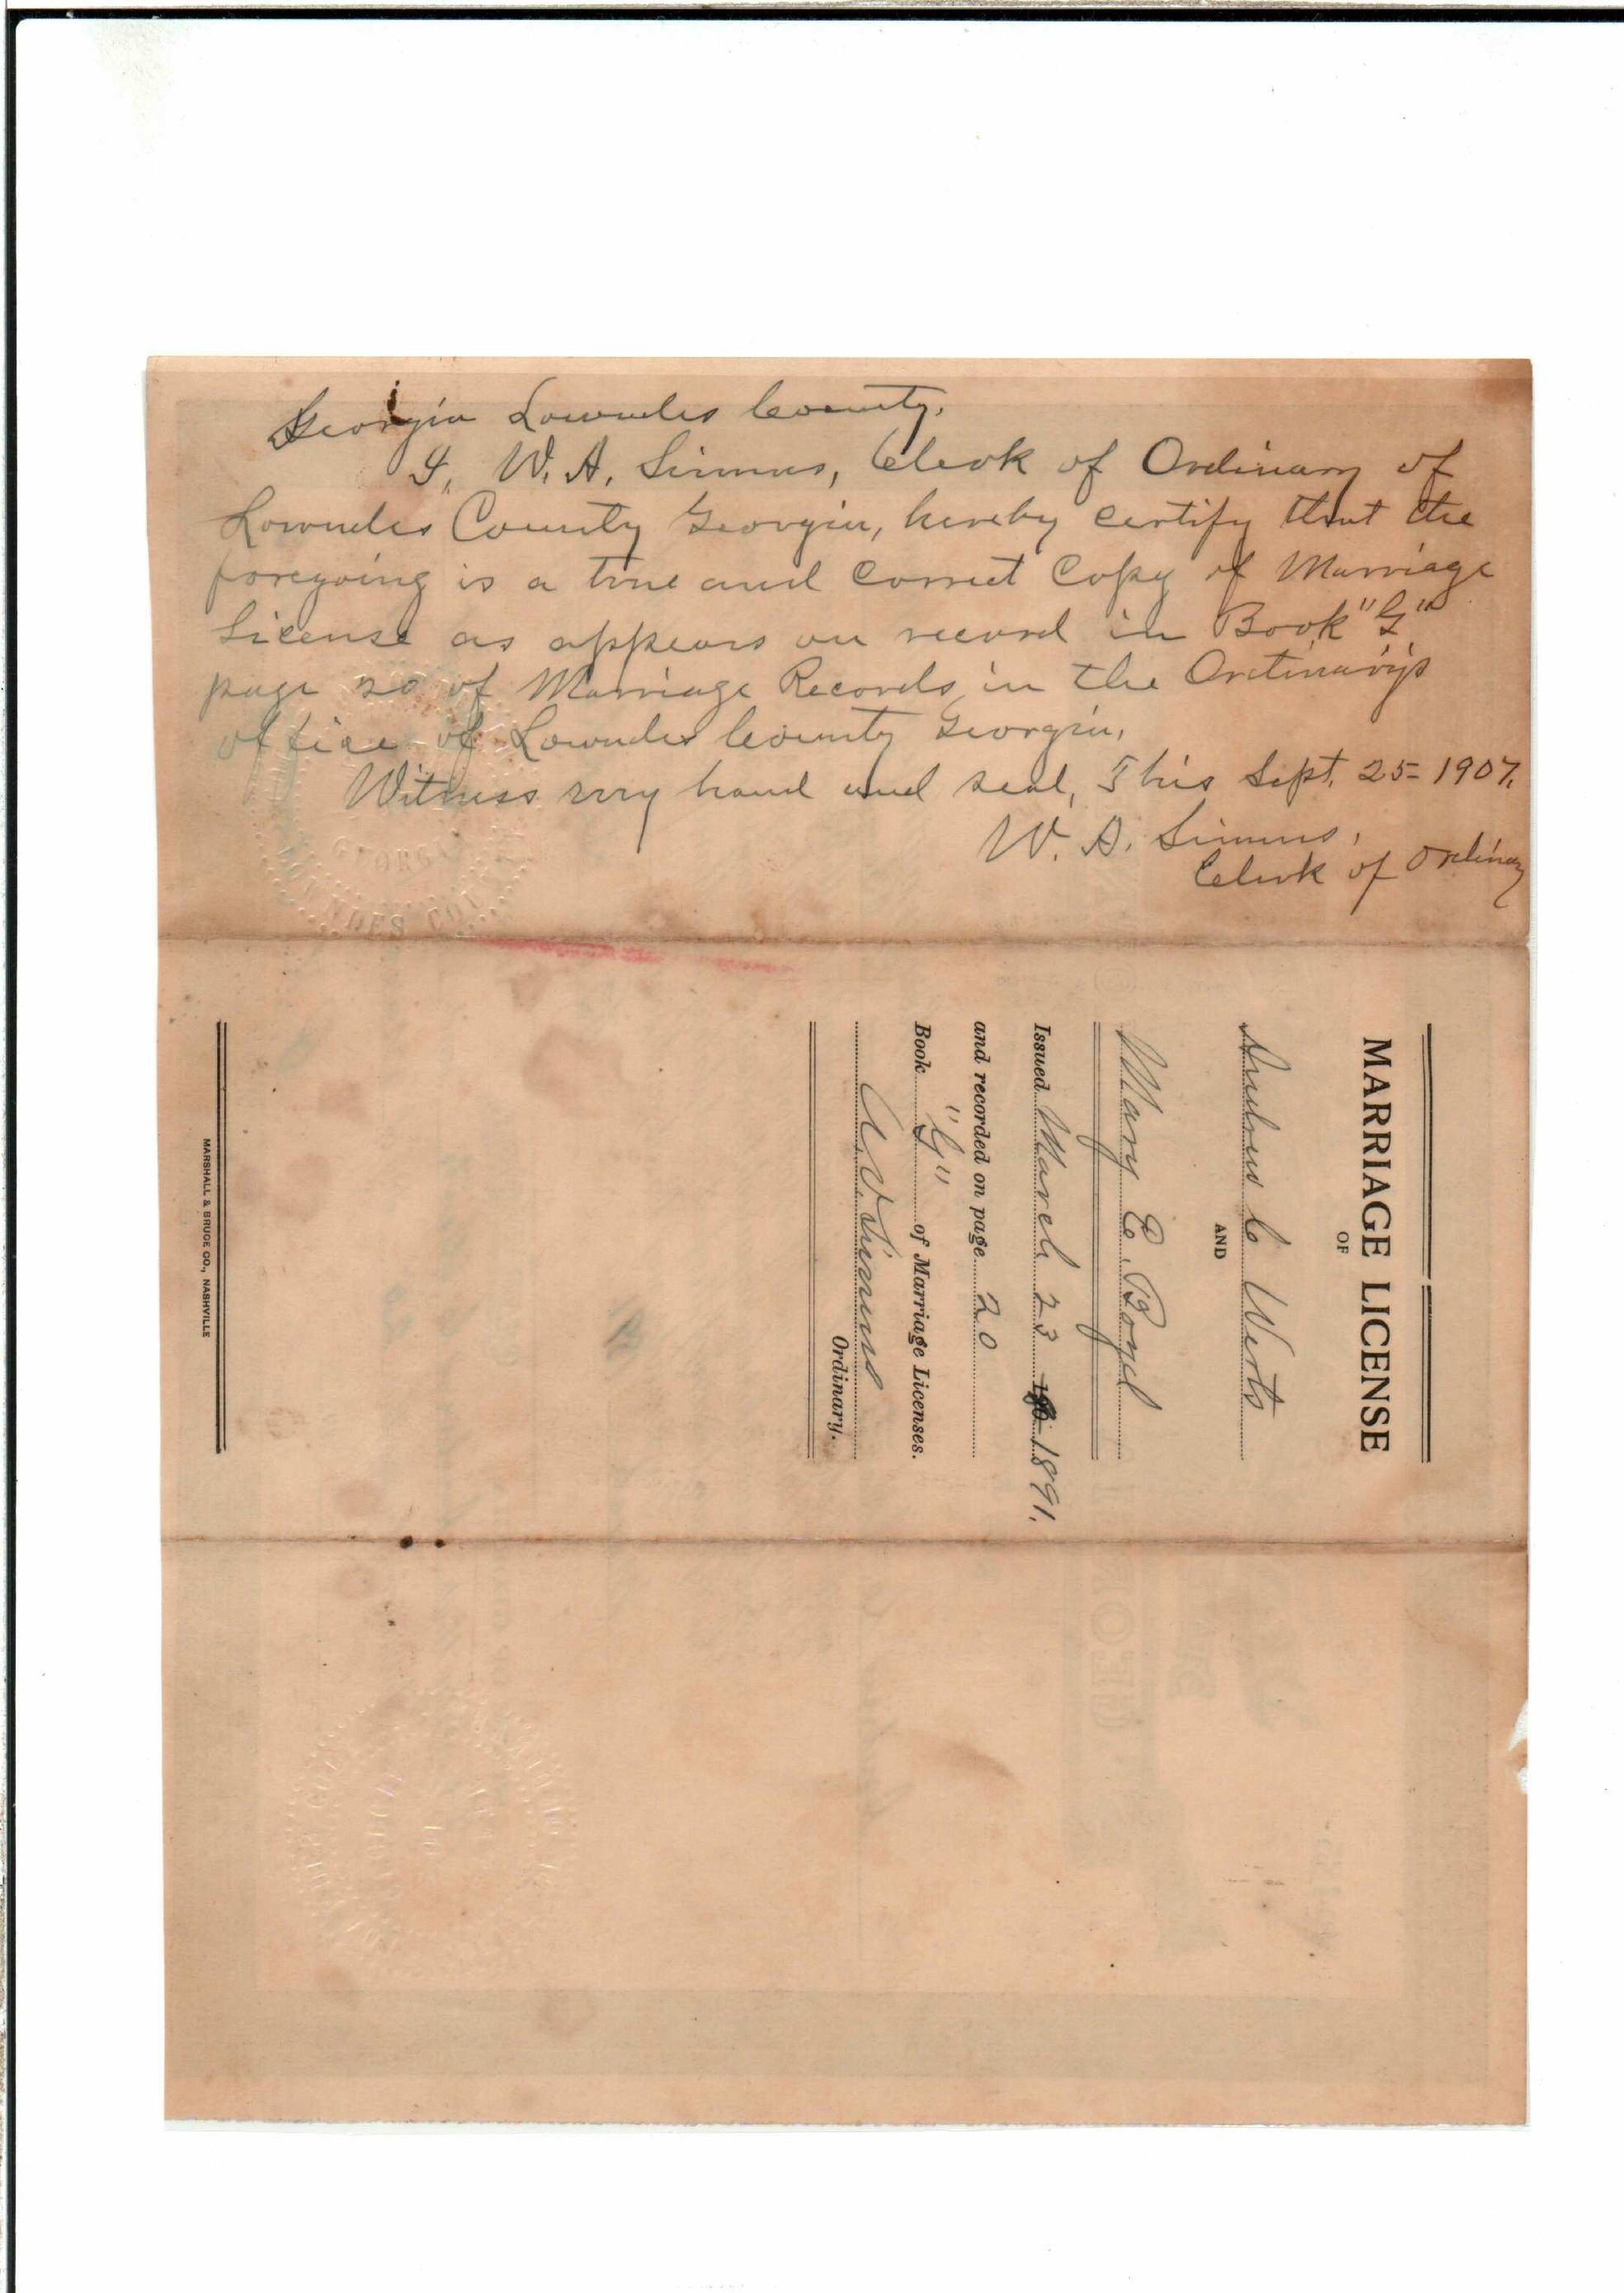 Georgia Lowndes County.
I, W. A. Simms, Clerk of Ordinary of
Lowndes County Georgia, hereby certify that the
foregoing is a true and correct Copy of Marriage
License as appears on record in Book "G"
page 20 of Marriage Records in the Ordinary's
office of Lowndes County Georgia,
Witness my hand and seal, This Sept. 25 = 1907.
W. A. Simms,
Clerk of Ordinary
GEORGIA
MARRIAGE LICENSE
OF
C Werts
AND
Mary E. Boyd
Issued March 23 190 1891.
and recorded on page 20
Book "G" of Marriage Licenses.
Simms
Ordinary.
MARSHALL & BRUCE CO., NASHVILLE